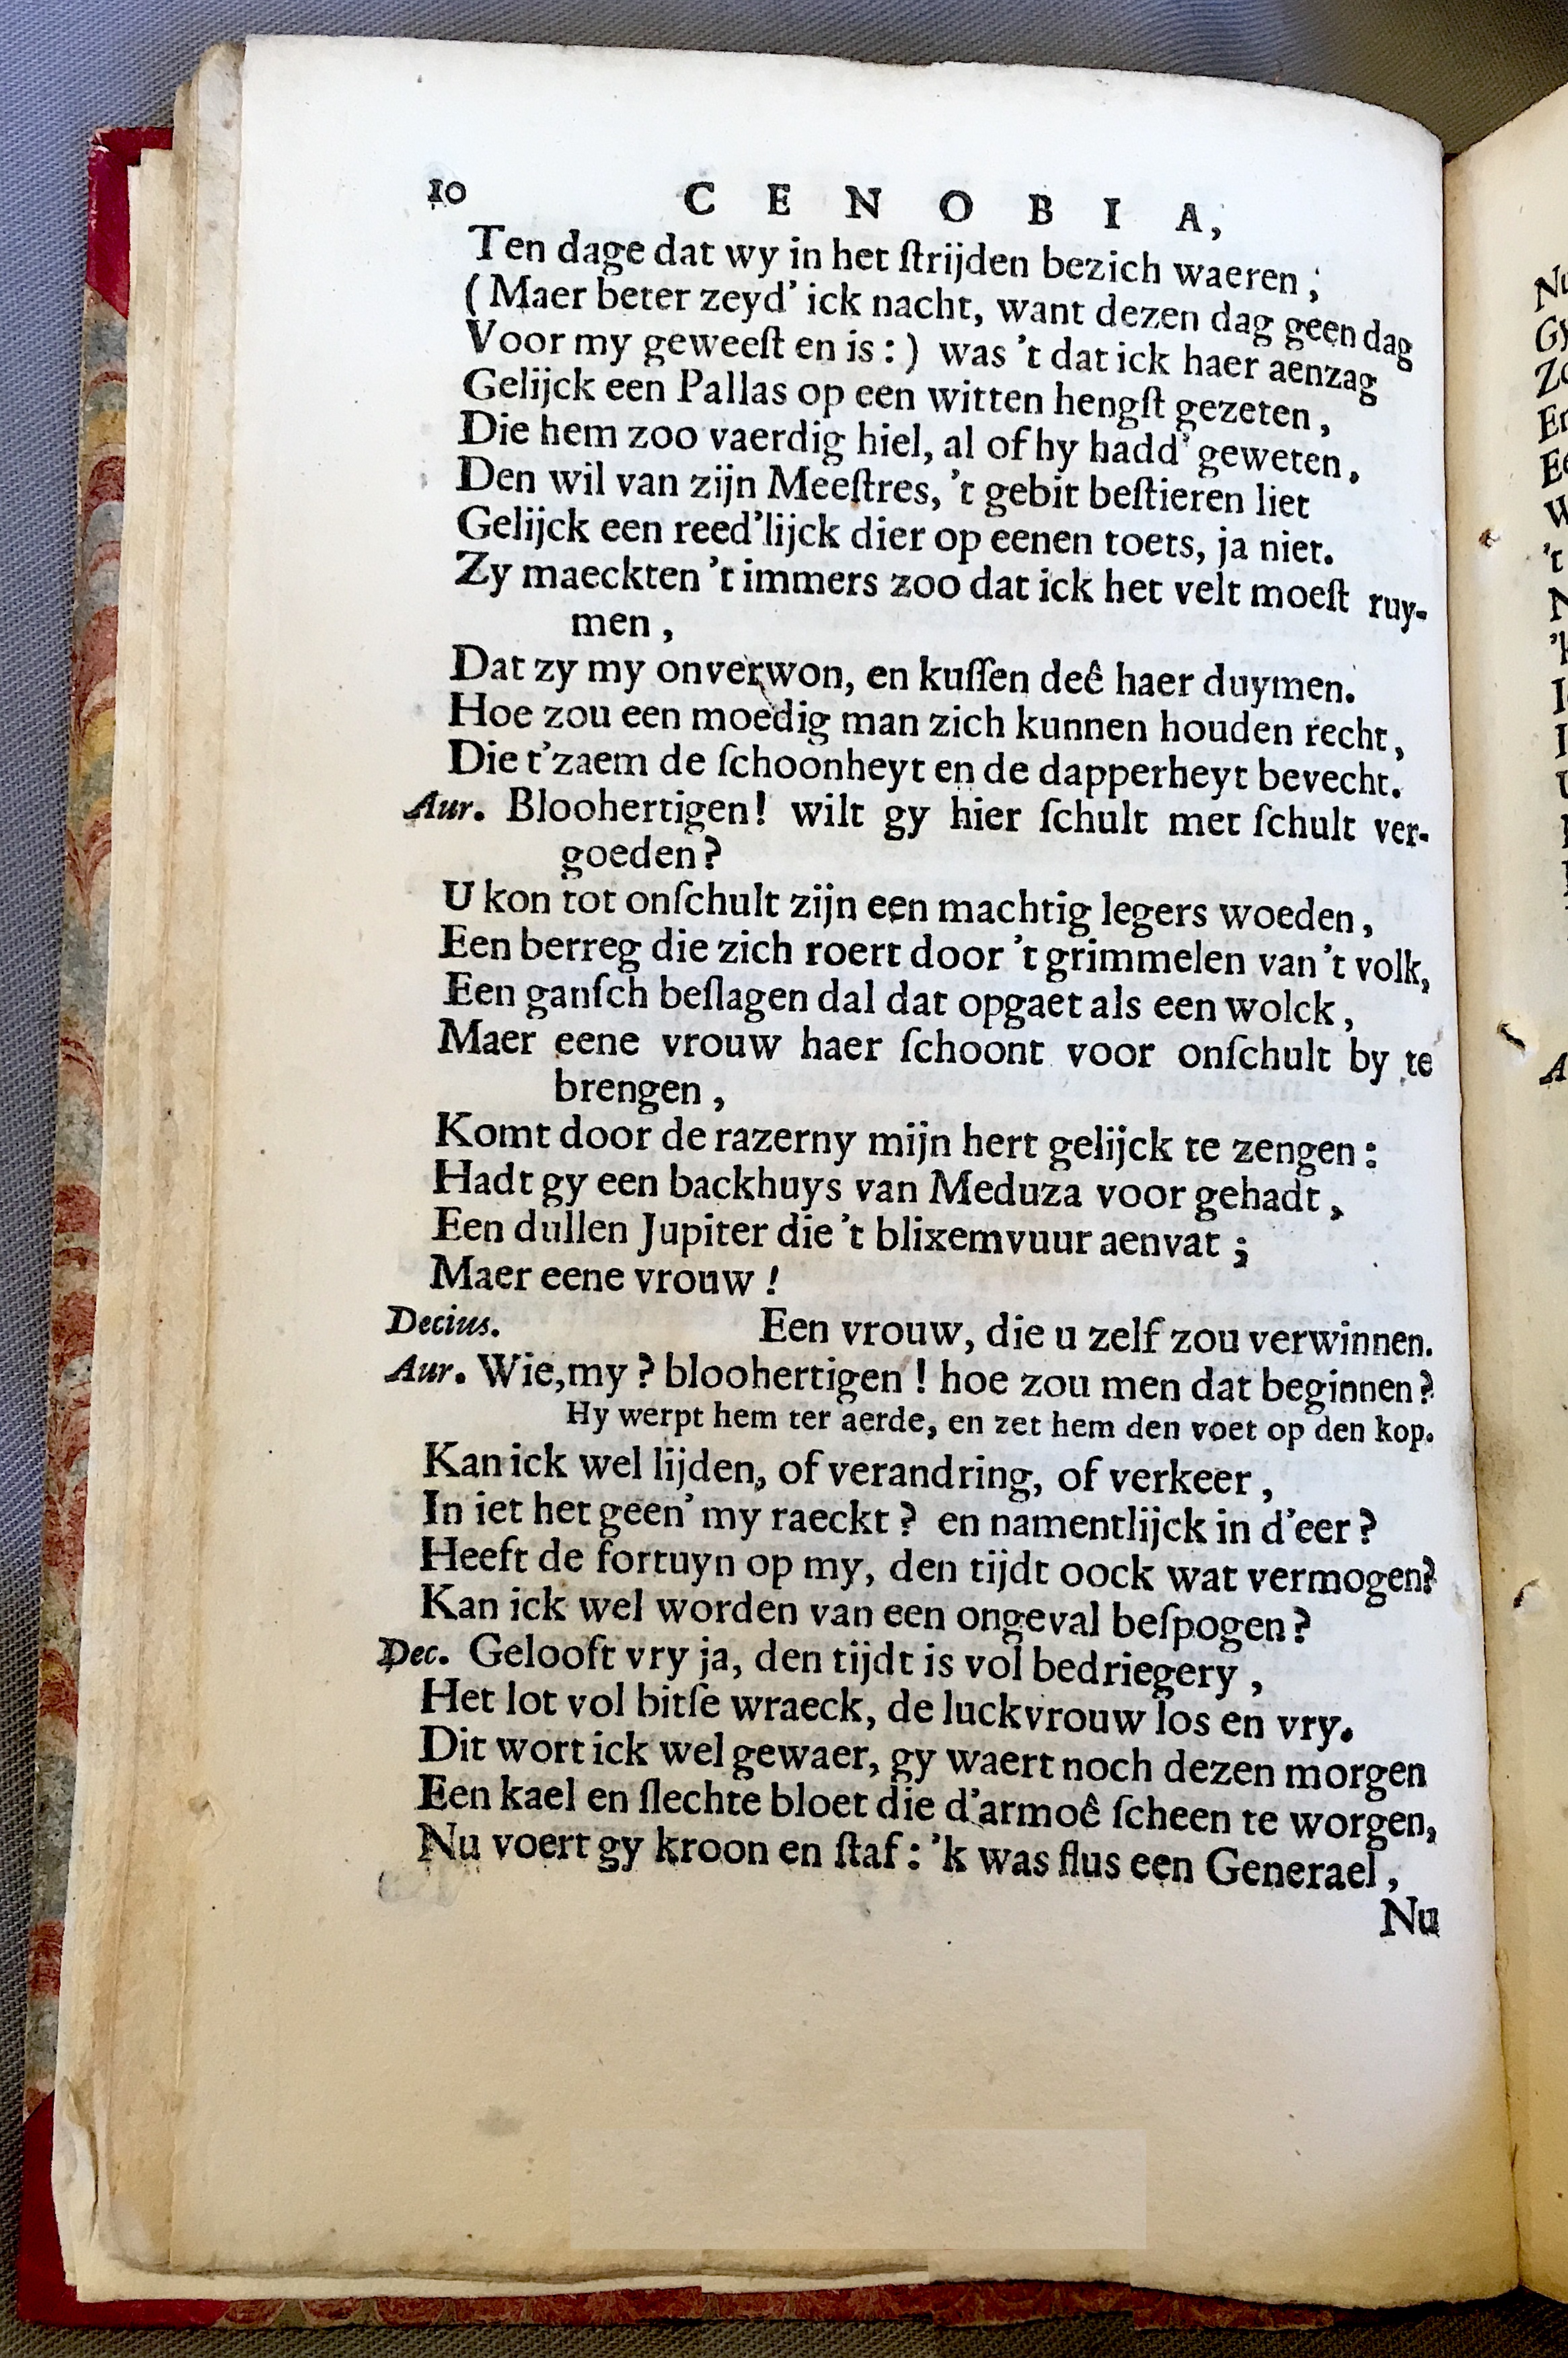 10 CENOBIA,
Ten dage dat wy in het ſtrijden bezich waeren ;
( Maer beter zeyd' ick nacht, want dezen dag geen dag
Voor my geweeſt en is : ) was 't dat ick haer aenzag
Gelijck een Pallas op een witten hengſt gezeten ,
Die hem zoo vaerdig hiel, al of hy hadd' geweten ,
Den wil van zijn Meeſtres, 't gebit beſtieren liet
Gelijck een reed'lijck dier op eenen toets, ja niet.
Zy maeckten 't immers zoo dat ick het velt moeſt ruy-
men ,
Dat zy my onverwon, en kuſſen deê haer duymen.
Hoe zou een moedig man zich kunnen houden recht ,
Die t'zaem de ſchoonheyt en de dapperheyt bevecht.
Aur. Bloohertigen! wilt gy hier ſchult met ſchult ver-
goeden?
U kon tot onſchult zijn een machtig legers woeden ,
Een berreg die zich roert door 't grimmelen van 't volk,
Een ganſch beſlagen dal dat opgaet als een wolck ,
Maer eene vrouw haer ſchoont voor onſchult by te
brengen ,
Komt door de razerny mijn hert gelijck te zengen :
Hadt gy een backhuys van Meduza voor gehadt ,
Een dullen Jupiter die 't blixemvuur aenvat ;
Maer eene vrouw !
Decius. Een vrouw, die u zelf zou verwinnen.
Aur. Wie,my ? bloohertigen ! hoe zou men dat beginnen?
Hy werpt hem ter aerde, en zet hem den voet op den kop.
Kan ick wel lijden, of verandring, of verkeer ,
In iet het geen' my raeckt ? en namentlijck in d'eer ?
Heeft de fortuyn op my, den tijdt oock wat vermogen?
Kan ick wel worden van een ongeval beſpogen ?
Dec. Gelooft vry ja, den tijdt is vol bedriegery ,
Het lot vol bitſe wraeck, de luckvrouw los en vry.
Dit wort ick wel gewaer, gy waert noch dezen morgen
Een kael en ſlechte bloet die d'armoê ſcheen te worgen,
Nu voert gy kroon en ſtaf : 'k was flus een Generael ,
Nu